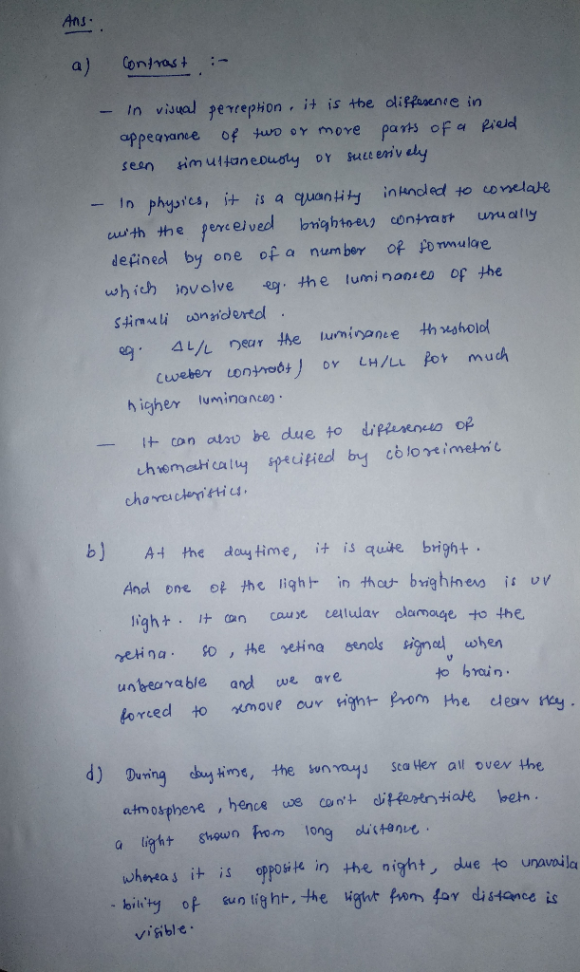 Ans.
a) Contrast :-
- In visual perception, it is the difference in
appearance of two or more parts of a field
seen simultaneously or succesively
- In physics, it is a quantity intended to correlate
with the perceived brightness contrast usually
defined by one of a number of formulae
which involve eg. the luminances of the
stimuli considered.
eg. ΔL/L near the luminance threshold
(weber contrast) or LH/LL for much
higher luminances.
- It can also be due to differences of
chromatically specified by coloreimetric
characteristics.
b) At the daytime, it is quite bright.
And one of the light in that brightness is UV
light. It can cause cellular damage to the
retina. So, the retina sends signal when
unbearable and we are to brain.
forced to remove our sight from the clear sky.
d) During daytime, the sunrays scatter all over the
atmosphere, hence we can't differentiate betn.
a light shown from long distance.
whereas it is opposite in the night, due to unavaila
-bility of sunlight, the light from far distance is
visible.